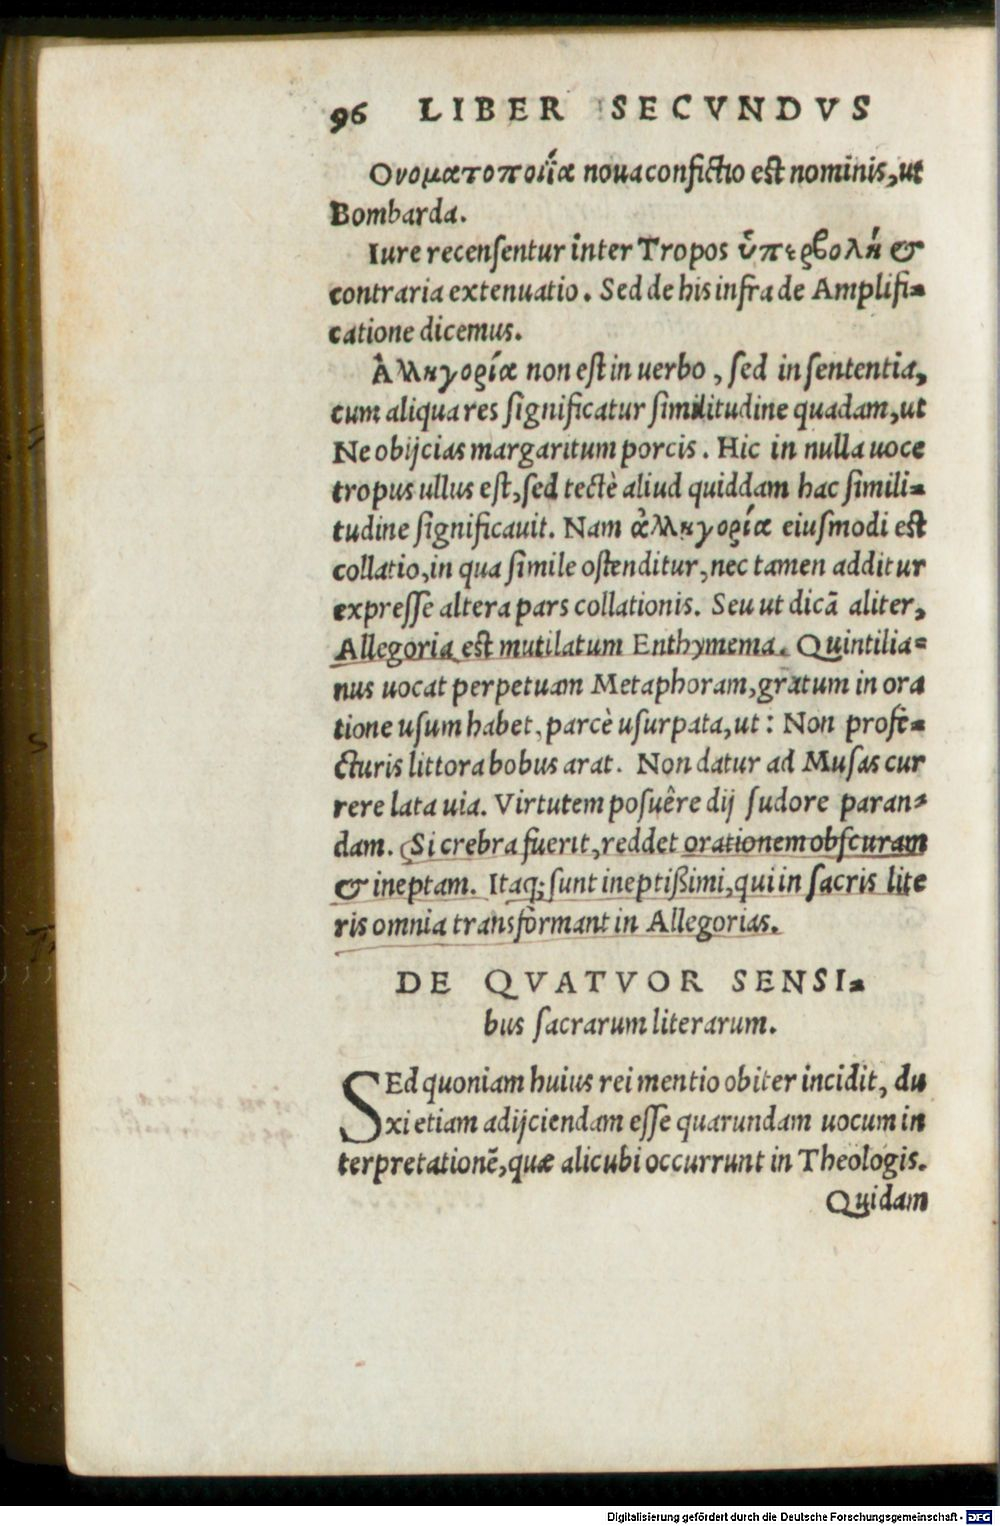 96 LIBER SECVNDVS
Ονοματοποιΐα noua confictio est nominis, ut
Bombarda.
Iure recensentur inter Tropos ὑπερβολὴ &
contraria extenuatio. Sed de his infra de Amplifi=
catione dicemus.
Ἀλληγορία non est in uerbo, sed in sententia,
cum aliqua res significatur similitudine quadam, ut
Ne obijcias margaritum porcis. Hic in nulla uoce
tropus ullus est, sed tectè aliud quiddam hac simili=
tudine significauit. Nam ἀλληγορία eiusmodi est
collatio, in qua simile ostenditur, nec tamen additur
expresse altera pars collationis. Seu ut dicā aliter,
Allegoria est mutilatum Enthymema. Quintilia=
nus uocat perpetuam Metaphoram, gratum in ora
tione usum habet, parcè usurpata, ut: Non profe=
cturis littora bobus arat. Non datur ad Musas cur
rere lata uia. Virtutem posuêre dij sudore paran=
dam. Si crebra fuerit, reddet orationem obscuram
& ineptam. Itaq; sunt ineptißimi, qui in sacris lite
ris omnia transformant in Allegorias.
DE QVATVOR SENSI=
bus sacrarum literarum.
SEd quoniam huius rei mentio obiter incidit, du
xi etiam adijciendam esse quarundam uocum in
terpretationē, quæ alicubi occurrunt in Theologis.
Quidam
Digitalisierung gefördert durch die Deutsche Forschungsgemeinschaft - DFG